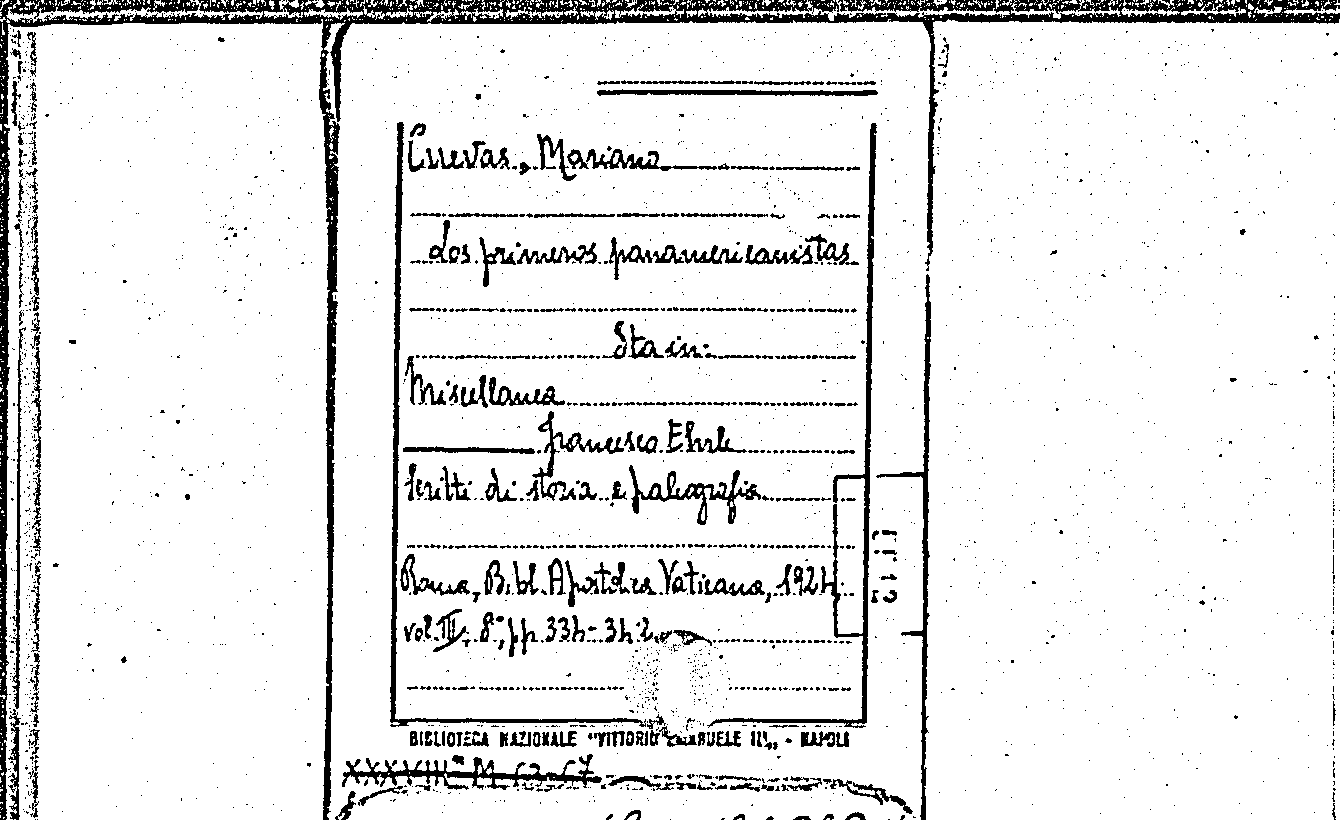 Cuevas, Mariano
Los primeros panamericanistas
Sta in:
Miscellanea
Francesco Ehrle
Scritti di storia e paleografia
Roma, Bibl. Apostolica Vaticana, 1924.
vol. III, 8°, pp. 334-342
BIBLIOTECA NAZIONALE "VITTORIO EMANUELE III„ - NAPOLI
XXXVIII M